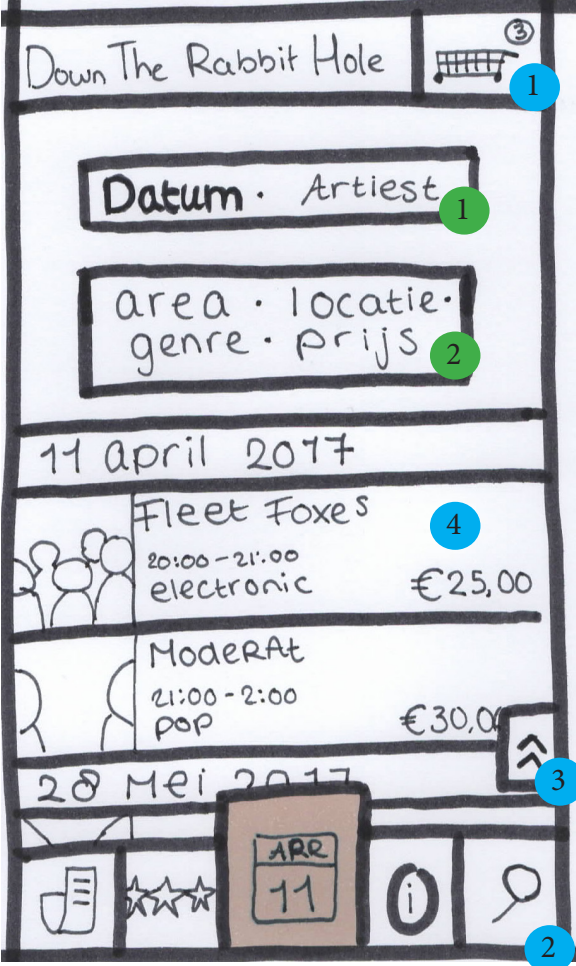 3
Down The Rabbit Hole
1
Datum · Artiest
1
area · locatie ·
genre · prijs
2
11 april 2017
Fleet Foxes
4
20:00 - 21:00
electronic €25,00
ModeRAt
21:00 - 2:00
pop €30,00
3
28 Mei 2017
ARR
11
i
2